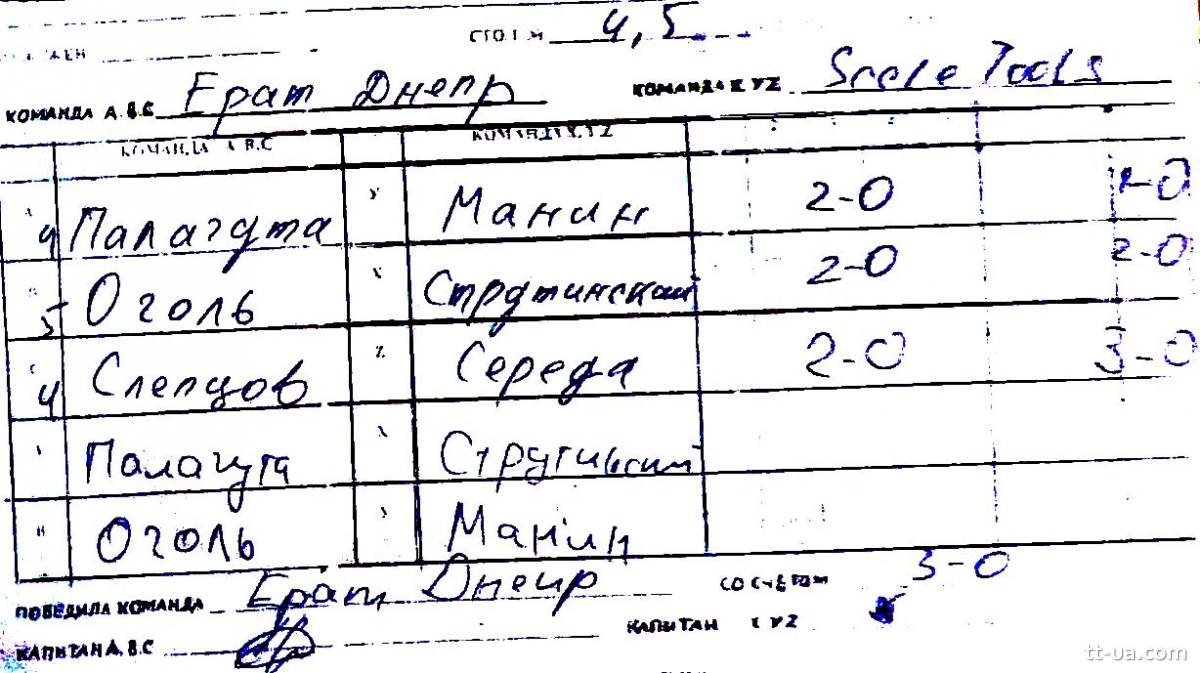 СТОЛ № 4,5
КОМАНДА А.В.С Ерат Днепр КОМАНДА X YZ Scale Tools
КОМАНДА А В.С КОМАНДА X.Y Z
4 Палагута Y Манин 2-0 1-0
5 Оголь X Струтинский 2-0 2-0
4 Слепцов Z Середа 2-0 3-0
Палагута X Струтинский
В Оголь Y Манин
ПОБЕДИЛА КОМАНДА Ерат Днепр СО СЧЁТОМ 3-0
КАПИТАН А.В.С КАПИТАН X YZ
tt-ua.com